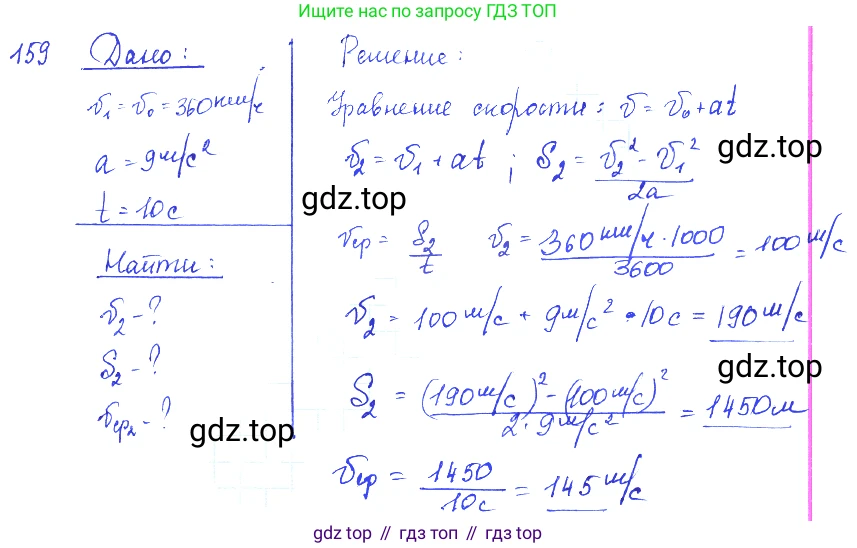 Ищите нас по запросу ГДЗ ТОП
159 Дано:
v₁ = v₀ = 360 км/ч
a = 9 м/с²
t = 10 с
Найти:
v₂ - ?
S₂ - ?
vср₂ - ?
Решение:
Уравнение скорости: v = v₀ + at
v₂ = v₁ + at ; S₂ = (v₂² - v₁²) / 2a
gdz.top
gdz.top
vср = S₂ / t v₂ = 360 км/ч · 1000 / 3600 = 100 м/с
v₂ = 100 м/с + 9 м/с² · 10 с = 190 м/с
gdz.top
S₂ = ((190 м/с)² - (100 м/с)²) / 2 · 9 м/с² = 1450 м
gdz.top
vср = 1450 / 10 с = 145 м/с
gdz top // гдз топ // гдз.top